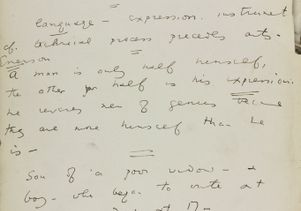 language - expression. instrument
of. technical process precedes arts -
Emerson
A man is only half himself,
the other half is his expression.
He reveres men of genius because
they are more himself than he
is -
Son of a poor widow - a
boy - who began to write at
at 17 -